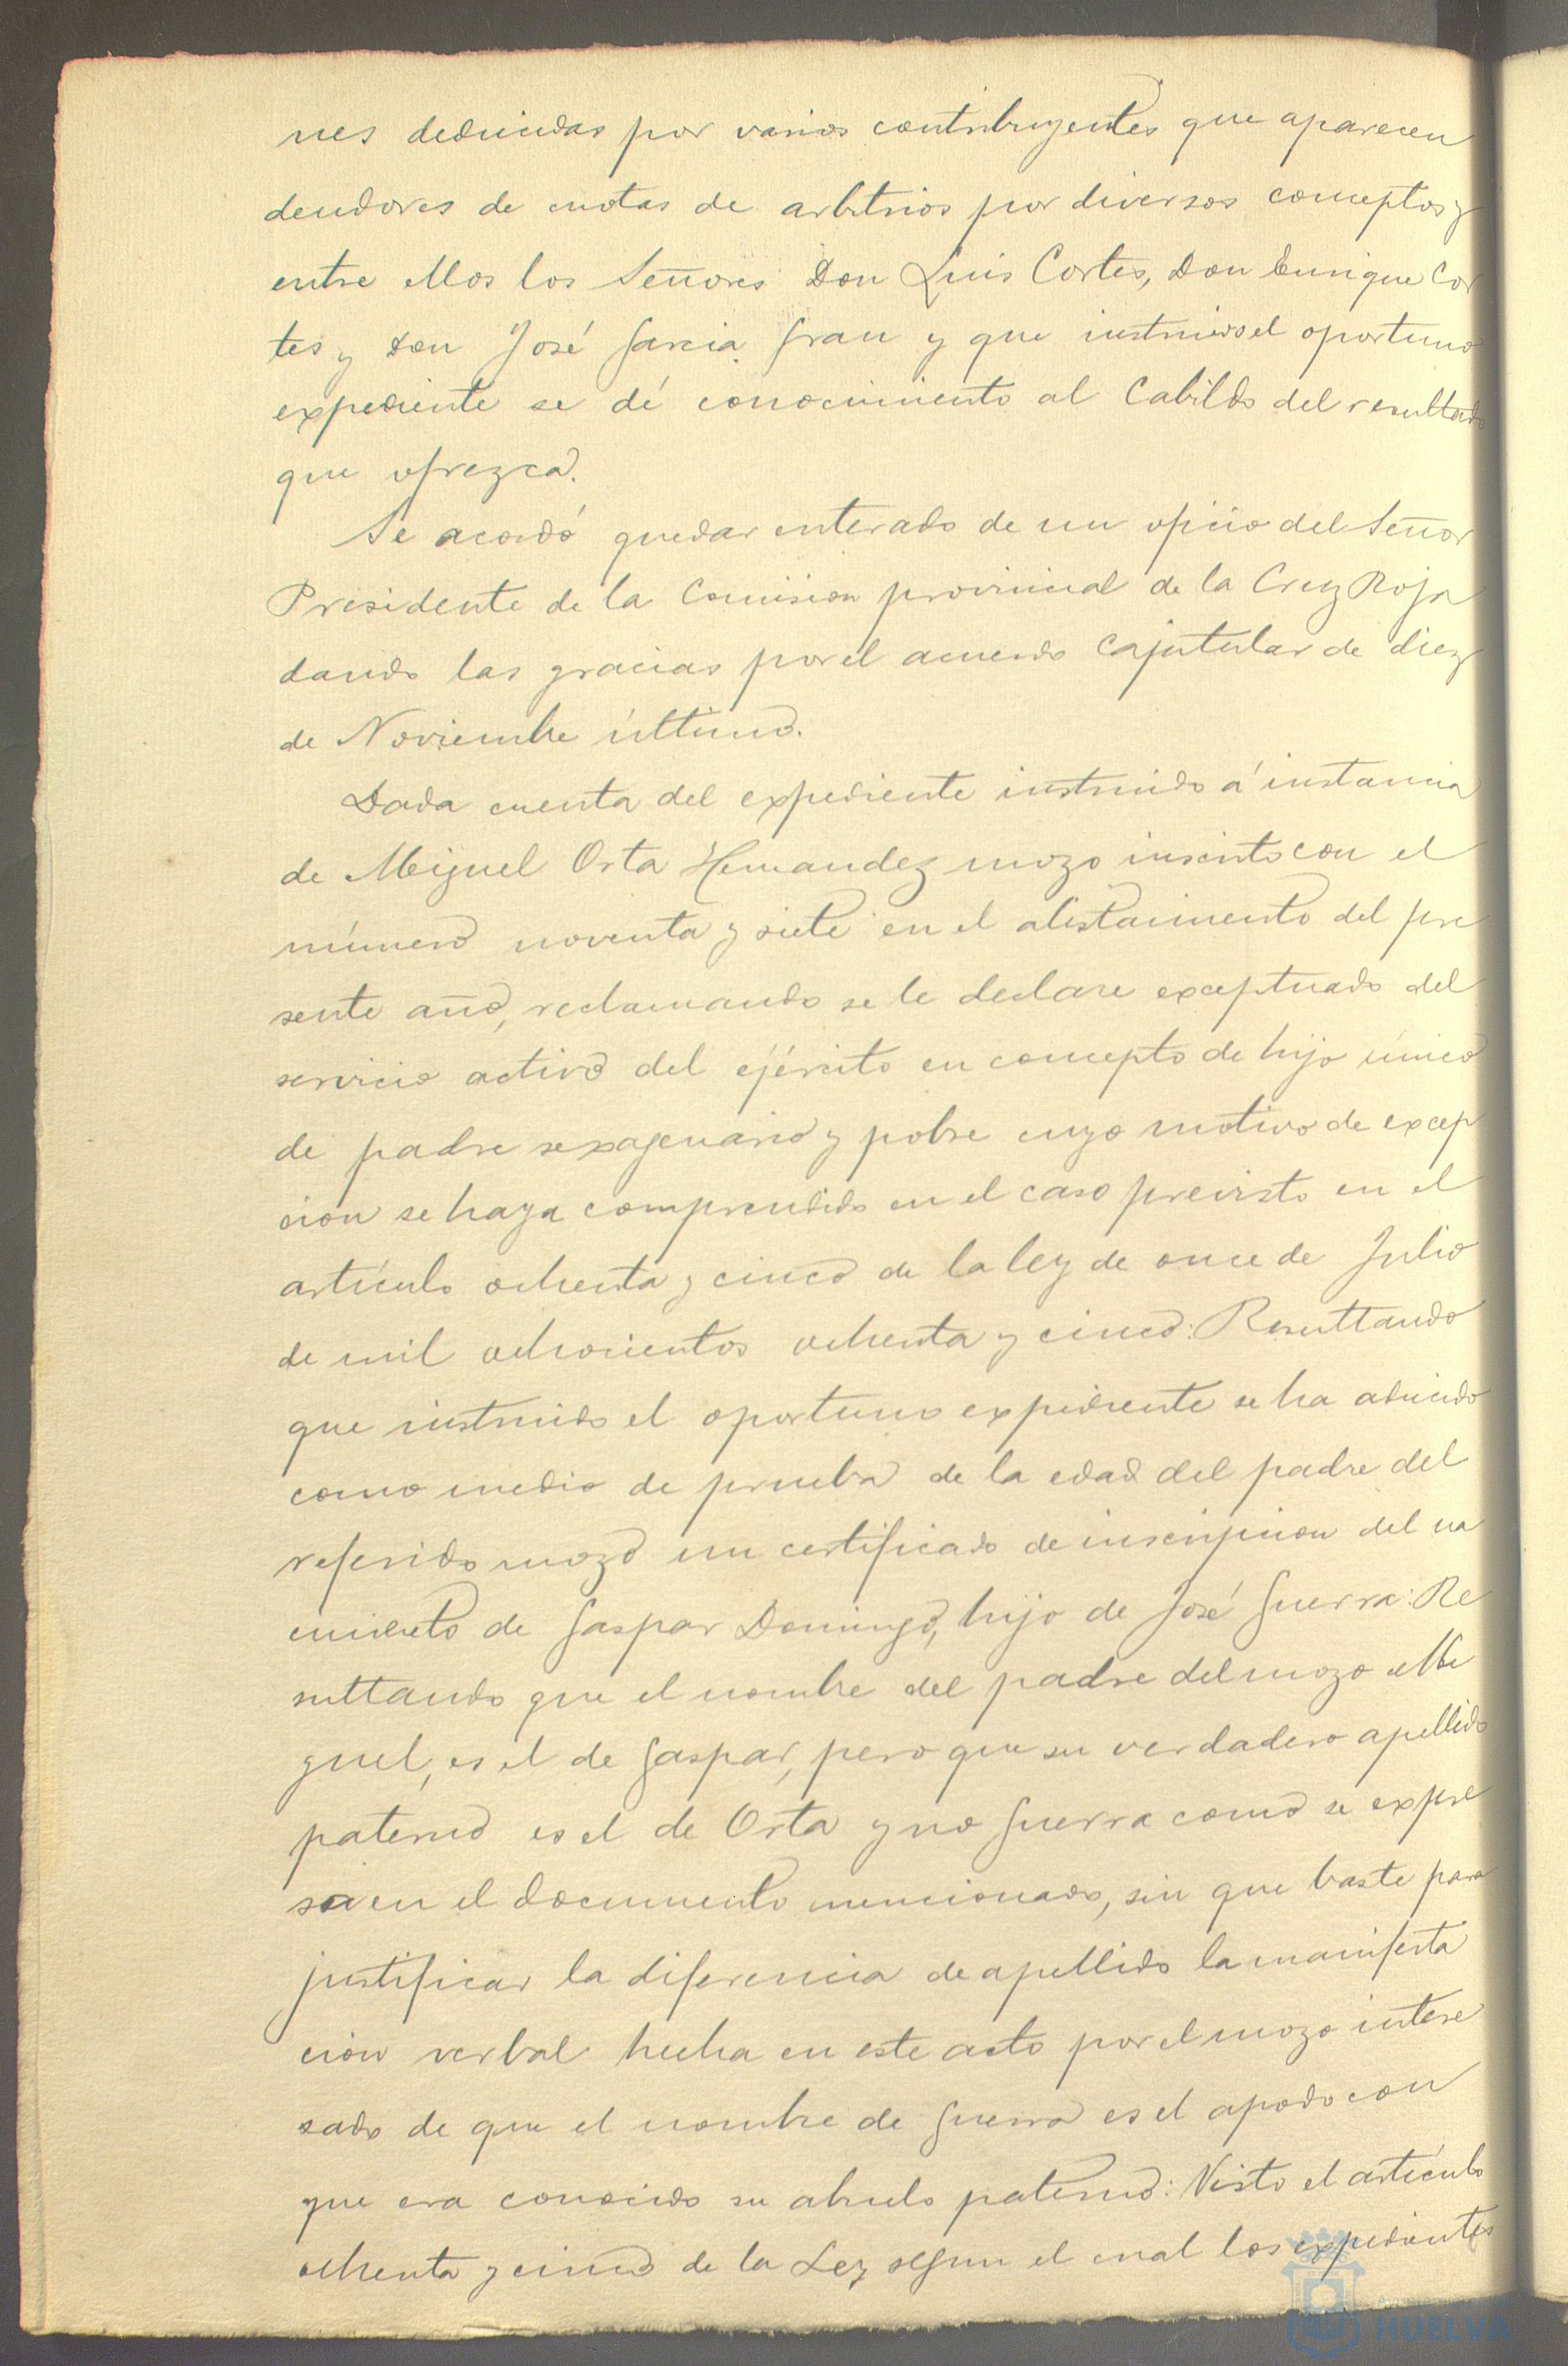 nes deducidas por varios contribuyentes que aparecen
deudores de cuotas de arbitrios por diversos conceptos y
entre ellos los Señores Don Luis Cortes, Don Enrique Cor
tes y Don José Garcia Grau y que instruido el oportuno
expediente se dé conocimiento al Cabildo del resultado
que ofrezca.
Se acordó quedar enterado de un oficio del Señor
Presidente de la Comision provincial de la Cruz Roja
dando las gracias por el acuerdo capitular de diez
de Noviembre último.
Dada cuenta del expediente instruido á instancia
de Miguel Orta Hernandez mozo inscrito con el
número noventa y siete en el alistamiento del pre
sente año, reclamando se le declare exceptuado del
servicio activo del ejército en concepto de hijo único
de padre sexagenario y pobre cuyo motivo de excep
cion se haya comprendido en el caso previsto en el
artículo ochenta y cinco de la ley de once de Julio
de mil ochocientos ochenta y cinco: Resultando
que instruido el oportuno expediente se ha aducido
como medio de prueba de la edad del padre del
referido mozo un certificado de inscripcion del na
cimiento de Gaspar Domingo, hijo de José Guerra: Re
sultando que el nombre del padre del mozo Mi
guel, es el de Gaspar, pero que su verdadero apellido
paterno es el de Orta y no Guerra como se expre
sa en el documento mencionado, sin que baste para
justificar la diferencia de apellido la manifesta
cion verbal hecha en este acto por el mozo intere
sado de que el nombre de Guerra es el apodo con
que era conocido su abuelo paterno: Visto el artículo
ochenta y cinco de la Ley segun el cual los expedientes
HUELVA